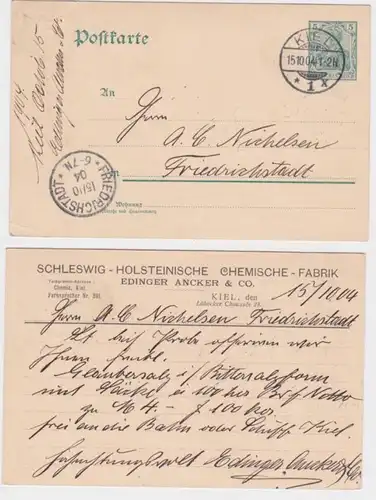 Postkarte
5
KIEL
15.10.04.1-2N.
* 1 x
1904
Kiel Octob 15
An
Herrn
A. C. Nichelsen
Friedrichstadt
FRIEDRICHSTADT
15/10
04
* 6-7N. *
Wohnung
SCHLESWIG - HOLSTEINISCHE CHEMISCHE - FABRIK
EDINGER ANCKER & CO.
Telegramm-Adresse:
Chemie, Kiel.
Fernsprecher Nr.
KIEL, den 15/10.04
Lübecker Chaussee
Herrn A. C. Nichelsen Friedrichstadt
offeriren wir
Ihnen franko
Glaubersalz i/ Bittersalzform
incl Säcke à 100 kos Btf Netto
zu M 4.- 100 kos
frei an die Bahn oder Schiff Kiel.
Hochachtungsvoll Edinger Ancker & Co.